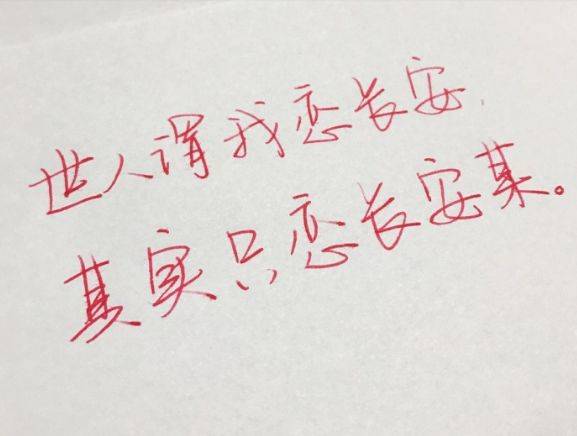 世人谓我恋长安
其实只恋长安某。